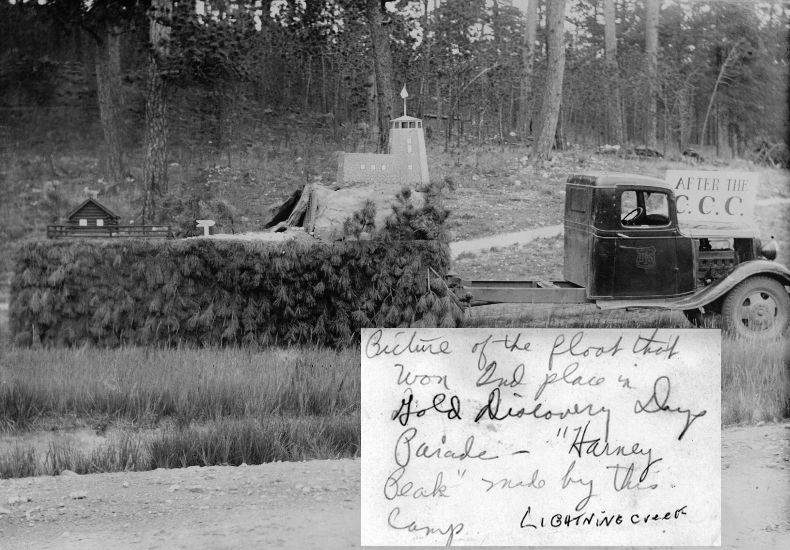 AFTER THE
C. C. C.
Picture of the float that
Won 2nd place in
Gold Discovery Days
Parade – "Harney
Peak" made by this
Camp. LIGHTNING Creek